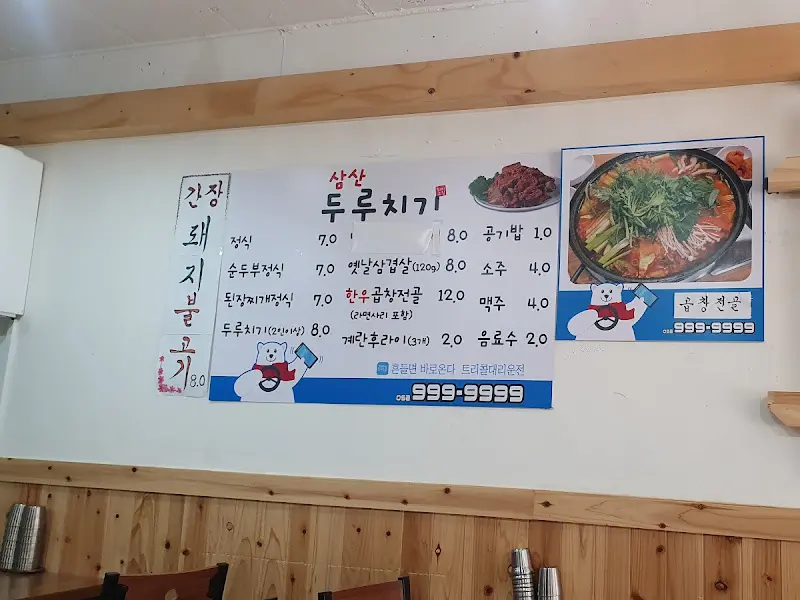 간장
돼
지
불
고
기 8.0
삼산
두루치기
정식 7.0
순두부정식 7.0
된장찌개정식 7.0
두루치기(2인이상) 8.0
8.0
옛날삼겹살(120g) 8.0
한우곱창전골 12.0
(라면사리 포함)
계란후라이(3개) 2.0
공기밥 1.0
소주 4.0
맥주 4.0
음료수 2.0
흔들면 바로온다 트리콜대리운전
052)999-9999
곱창전골
052)999-9999